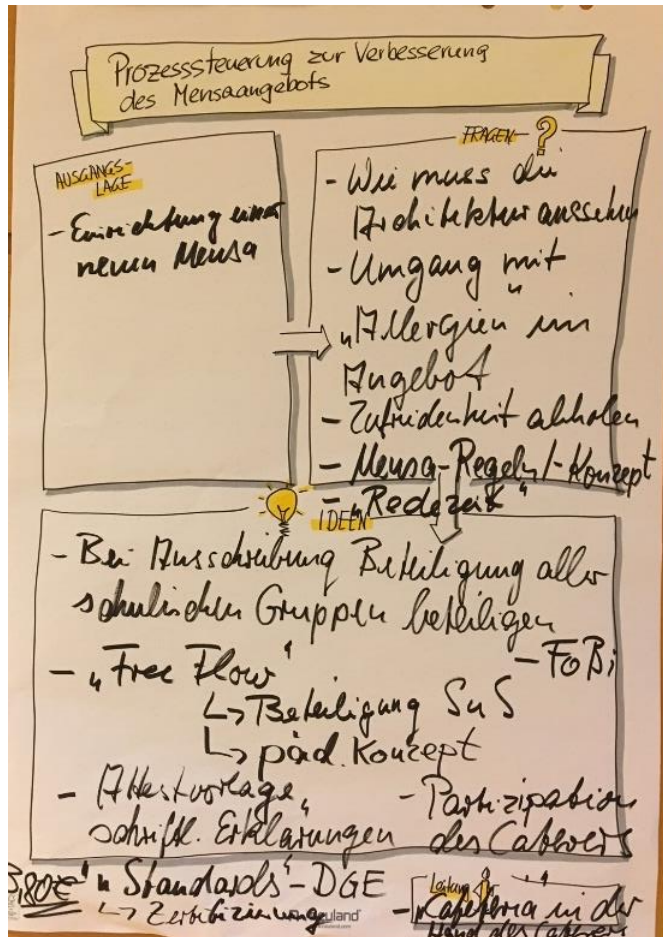 Prozesssteuerung zur Verbesserung
des Mensaangebots
AUSGANGS-
LAGE
- Einrichtung einer
neuen Mensa
FRAGEN ?
- Wie muss die
Architektur aussehen
- Umgang mit
"Allergien" im
Angebot
- Zufriedenheit abholen
- Mensa-Regeln/-Konzept
- "Redezeit"
IDEEN
- Bei Ausschreibung Beteiligung aller
schulischen Gruppen beteiligen
- "Free Flow"
- FoBi
↳ Beteiligung SuS
↳ päd. Konzept
- Attestvorlage,
schriftl. Erklärungen
- Partizipation
des Caterers
3,80€
"Standards" - DGE
↳ Zertifizierung
Leitung
- Cafeteria in der
Hand des Caterers
neuland